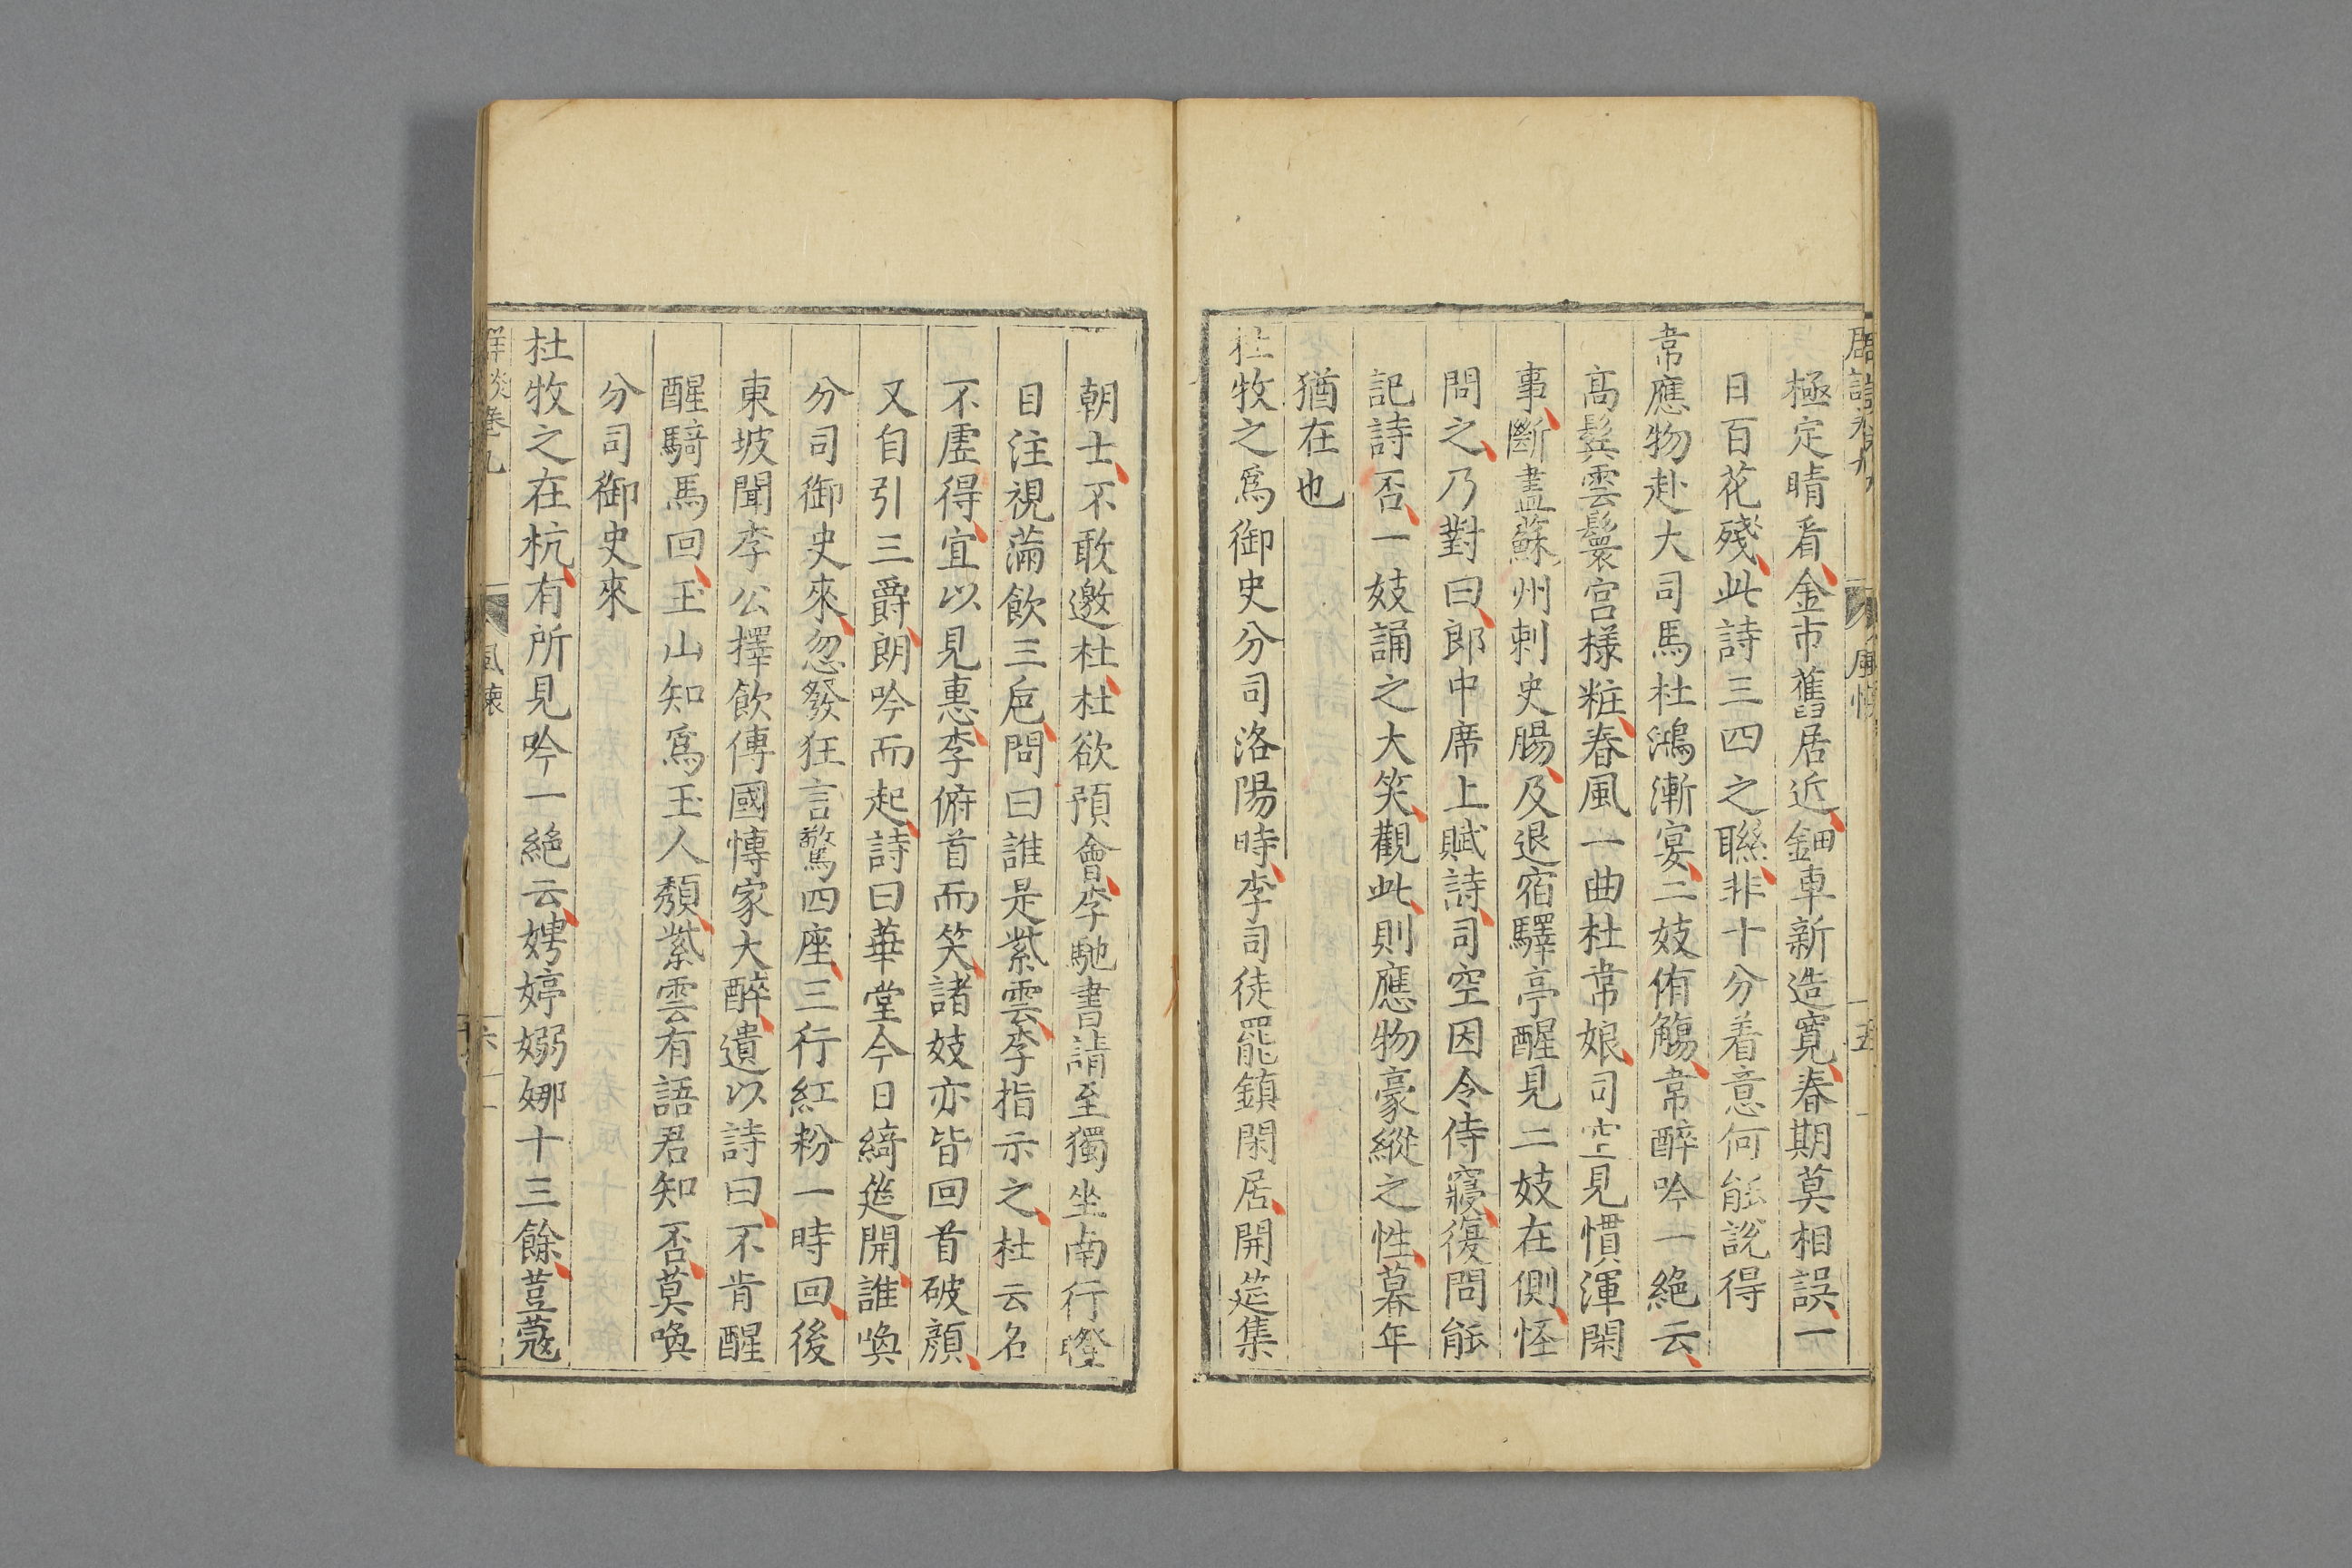 極定睛看金市舊居近鈿車新造寛春期莫相誤一
日百花殘此詩三四之聯非十分着意何能說得
韋應物赴大司馬杜鴻漸宴二妓侑觴韋醉吟一絶云
高髻雲鬟宫樣粧春風一曲杜韋娘司空見慣渾閑
事斷盡蘇州刺史腸及退宿驛亭醒見二妓在側怪
問之乃對曰郎中席上賦詩司空因令侍寢復問能
記詩否一妓誦之大笑觀此則應物豪縱之性暮年
猶在也
杜牧之爲御史分司洛陽時李司徒罷鎮閑居開筵集
朝士不敢邀杜杜欲預會李馳書請至獨坐南行瞪
目注視滿飲三巵問曰誰是紫雲李指示之杜云名
不虛得宜以見惠李俯首而笑諸妓亦皆回首破顏
又自引三爵朗吟而起詩曰華堂今日綺筵開誰喚
分司御史來忽發狂言驚四座三行紅粉一時回後
東坡聞李公擇飲傅國慱家大醉遺以詩曰不肯醒
醒騎馬回玉山知爲玉人頹紫雲有語君知否莫喚
分司御史來
杜牧之在杭有所見吟一絶云娉婷嫋娜十三餘荳蔻
群談卷九
六